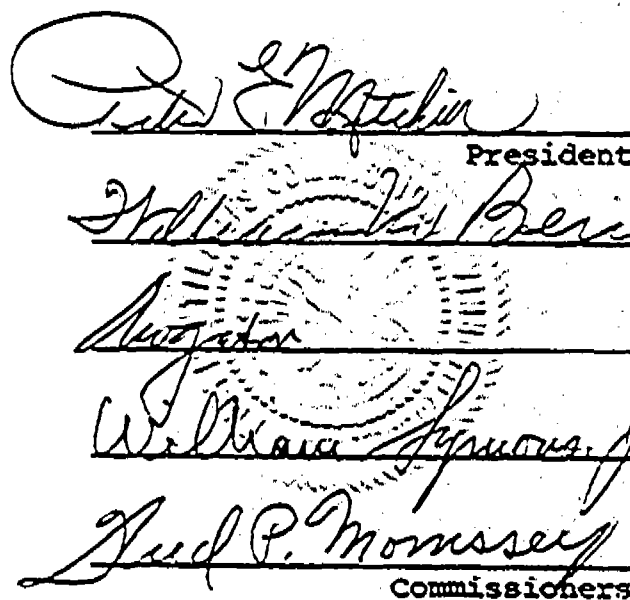 Peter E. Mitchell
President
William
William Symons. J
Fred P. Morrissey
Commissioners